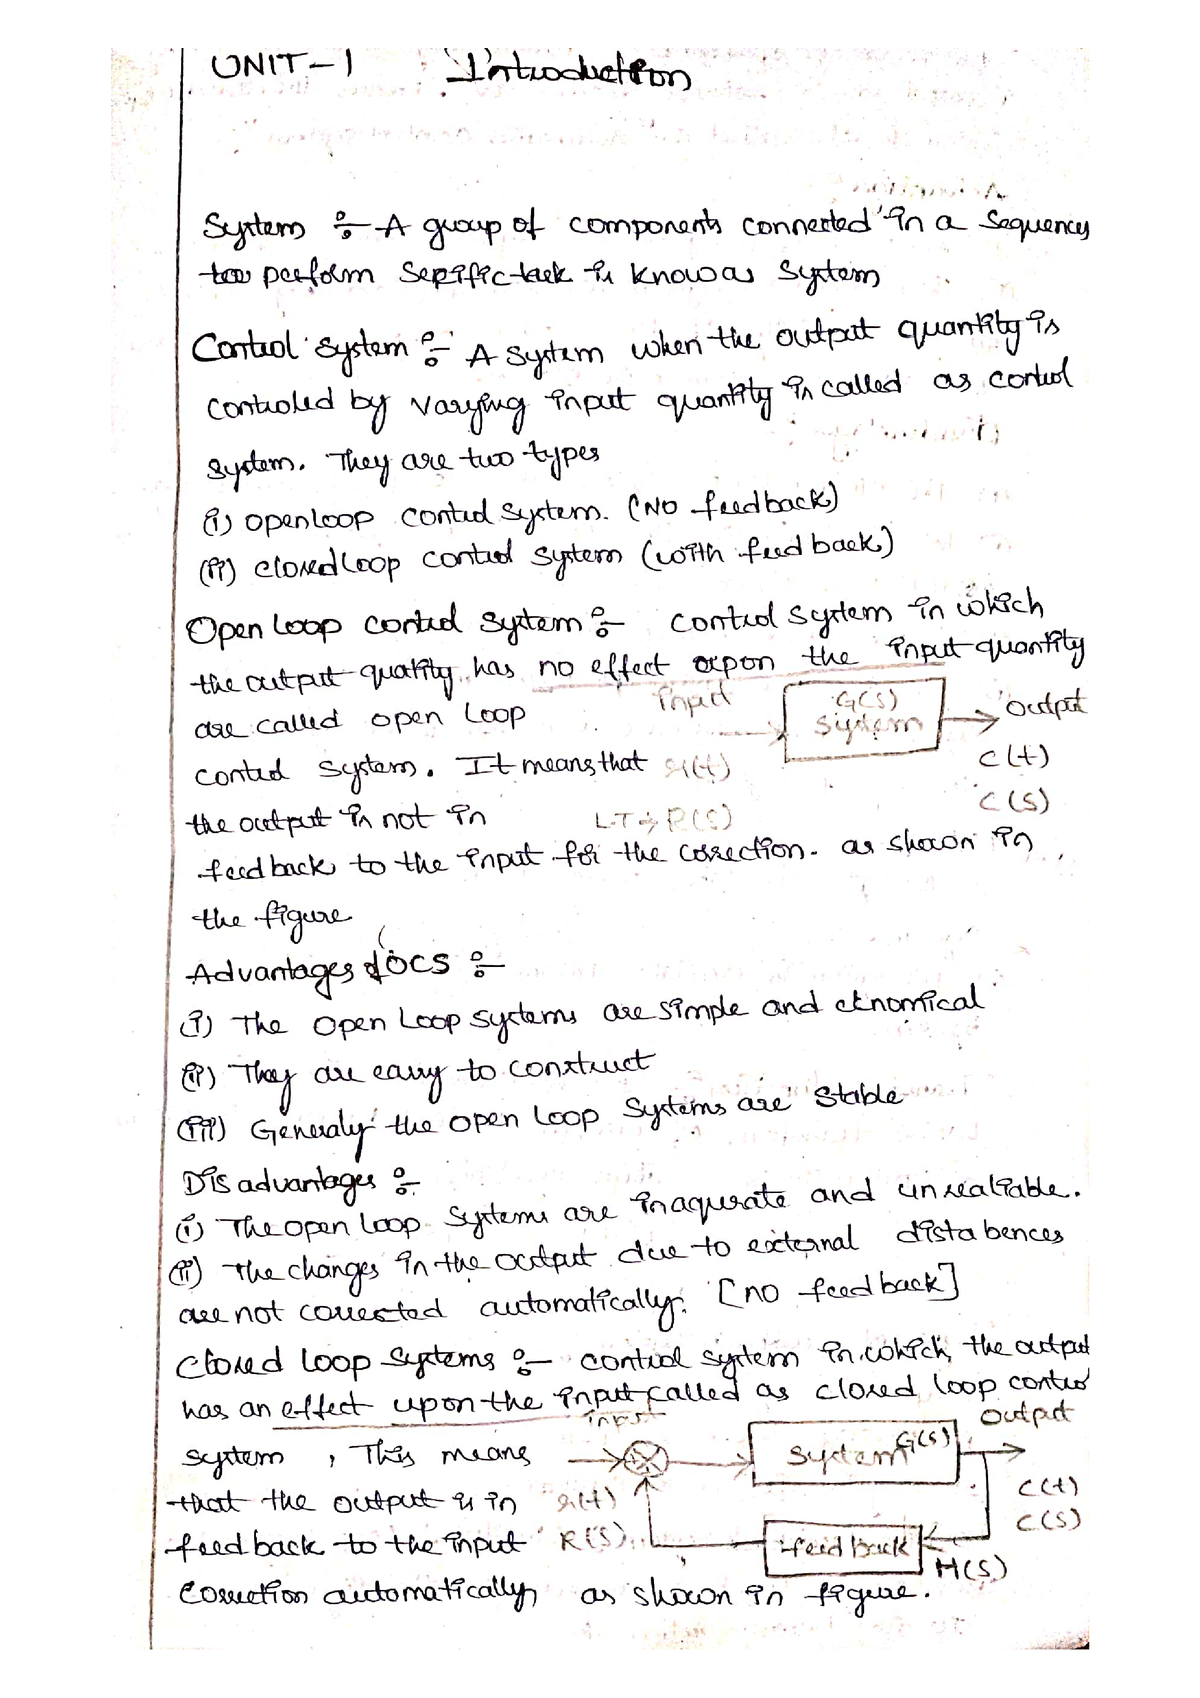 UNIT-1 Introduction
System :- A group of components connected in a Sequency
too perform Sepific task is know as System
Control System :- A system when the output quantity is
controled by varying input quantity is called as control
system. They are two types
(i) open loop control system. (No feedback)
(ii) closed loop control system (with feed back)
Open Loop control system :- control system in which
the output quatity has no effect orpon the input quantity
are called open Loop
input G(S) System output
control system. It means that r(t) c(t)
the output is not in LT → R(S) C(S)
feedback to the input for the correction. as shown in
the figure
Advantages of OCS :-
(i) The open Loop systems are simple and eknomical
(ii) They are easy to construct
(iii) Generaly the open Loop Systems are stable
Disadvantages :-
(i) The open loop Systems are inaqurate and unrealiable.
(ii) The changes in the output due to external distabences
are not corrected automatically. [no feed back]
Closed Loop Systems :- control system in which the output
has an effect upon the input called as closed loop contro
input System G(S) output
system, This means
that the output is in r(t) C(t)
feedback to the input R(S) feed back C(S)
H(S)
Correction automatically as shown in figure.